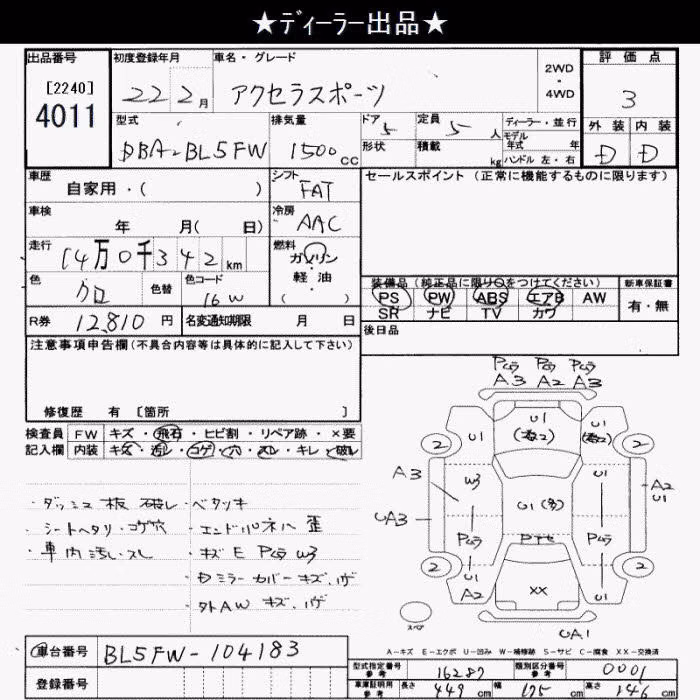 ★ディーラー出品★
出品番号 初度登録年月 車名・グレード 2WD・4WD 評価点
[2240] 4011 22 2月 アクセラスポーツ 3
型式 排気量 ドア 定員 ディーラー・並行 外装 内装
DBA-BL5FW 1500cc 5 5人 モデル年式 年 D D
形状 積載 kg ハンドル 左・右
車歴 シフト セールスポイント (正常に機能するものに限ります)
自家用・( ) FAT
車検 冷房
年 月( 日) AAC
走行 燃料
14万0千342km ガソリン
色 色替 色コード 軽・油
クロ 16W ( )
装備品 (純正品に限り○をつけてください) 新車保証書
PS PW ABS エアB AW 有・無
SR ナビ TV カワ
R券 12,810円 名変通知期限 月 日
後日品
注意事項申告欄(不具合内容等は具体的に記入して下さい)
修復歴 有 [箇所 ]
検査員 FW キズ・飛石・ヒビ割・リペア跡・×要
記入欄 内装 キズ・汚レ・コゲ・穴・スレ・キレ・破レ
・ダッシュ板破レ・ベタツキ
・シートヘタリ・コゲ穴 ・エンドパネル歪
・車内汚レ・スレ ・キズE Pムラ W3
・Dミラーカバーキズ、ハゲ
・外AWキズ、ハゲ
Pムラ Pムラ Pムラ
A3 A2 A3
U1
U1 U1
2 2
A3 W3 U1 A2
U1
UA3 U1(多)
Pムラ Pムラ
2 2
U1 U1
A2 XX
スペア
UA1
A-キズ E-エクボ U-凹み W-補修跡 S-サビ C-腐食 XX-交換済
車台番号 BL5FW-104183
型式指定番号 参考 16287 類別区分番号 参考 0001
登録番号
車庫証明用 参考 長さ 449cm 幅 175cm 高さ 146cm